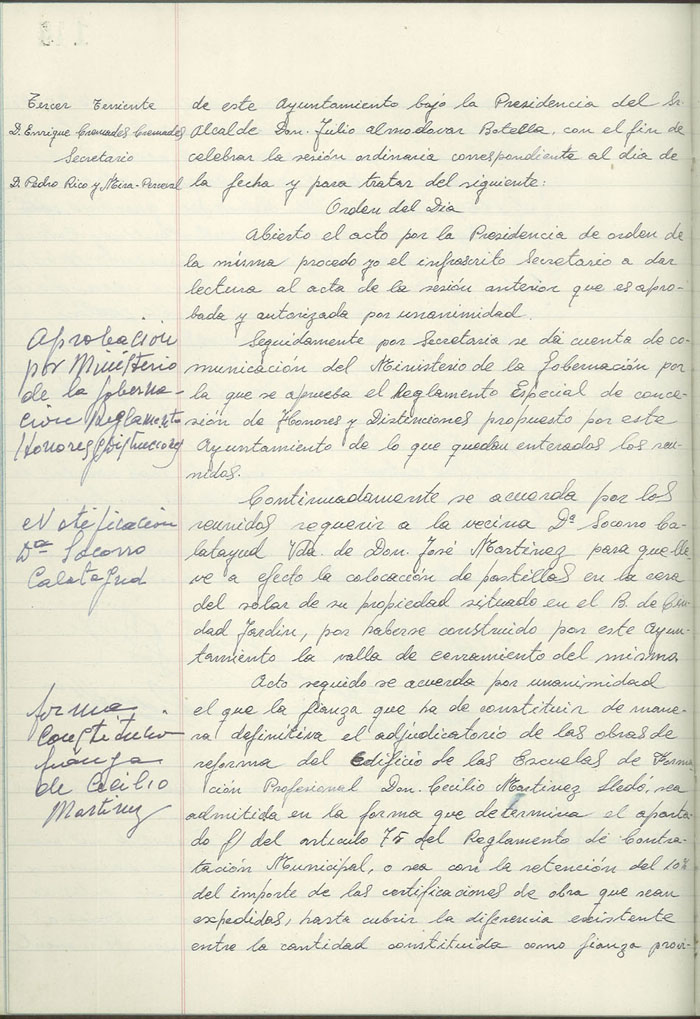 Tercer Teniente
D. Enrique Cremades Cremades
Secretario
D. Pedro Rico y Mira-Perceval
Aprobación
por Ministerio
de la Goberna-
ción Reglamento
Honores y Distinciones
Notificación
Dª Socorro
Calatayud
forma
Constitución
fianza
de Cecilio
Martinez
de este Ayuntamiento bajo la Presidencia del Sr.
Alcalde Don. Julio Almodovar Botella, con el fin de
celebrar la sesión ordinaria correspondiente al dia de
la fecha y para tratar del siguiente:
Orden del Dia
Abierto el acto por la Presidencia de orden de
la misma procedo yo el infrascrito Secretario a dar
lectura al acta de la sesión anterior que es apro-
bada y autorizada por unanimidad.
Seguidamente por Secretaria se dá cuenta de co-
municación del Ministerio de la Gobernación por
la que se aprueba el Reglamento Especial de conce-
sión de Honores y Distinciones propuesto por este
Ayuntamiento de lo que quedan enterados los reu-
nidos.
Continuadamente se acuerda por los
reunidos requerir a la vecina Dª Socorro Ca-
latayud Vda. de Don. José Martinez para que lle-
ve a efecto la colocación de postillos en la cara
del solar de su propiedad situado en el B. de Ciu-
dad Jardin, por haberse construido por este Ayun-
tamiento la valla de cerramiento del mismo.
Acto seguido se acuerda por unanimidad
el que la fianza que ha de constituir de mane-
ra definitiva el adjudicatorio de las obras de
reforma del Edificio de las Escuelas de Forma-
ción Profesional Don. Cecilio Martinez Lledó, sea
admitida en la forma que determina el aparta-
do f) del articulo 75 del Reglamento de Contra-
tación Municipal, o sea con la retención del 10%
del importe de las certificaciones de obra que sean
expedidas, hasta cubrir la diferencia existente
entre la cantidad constituida como fianza provi-